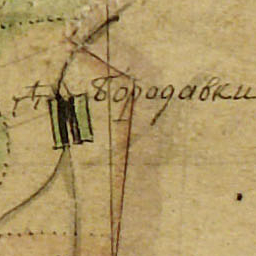 Бородавки